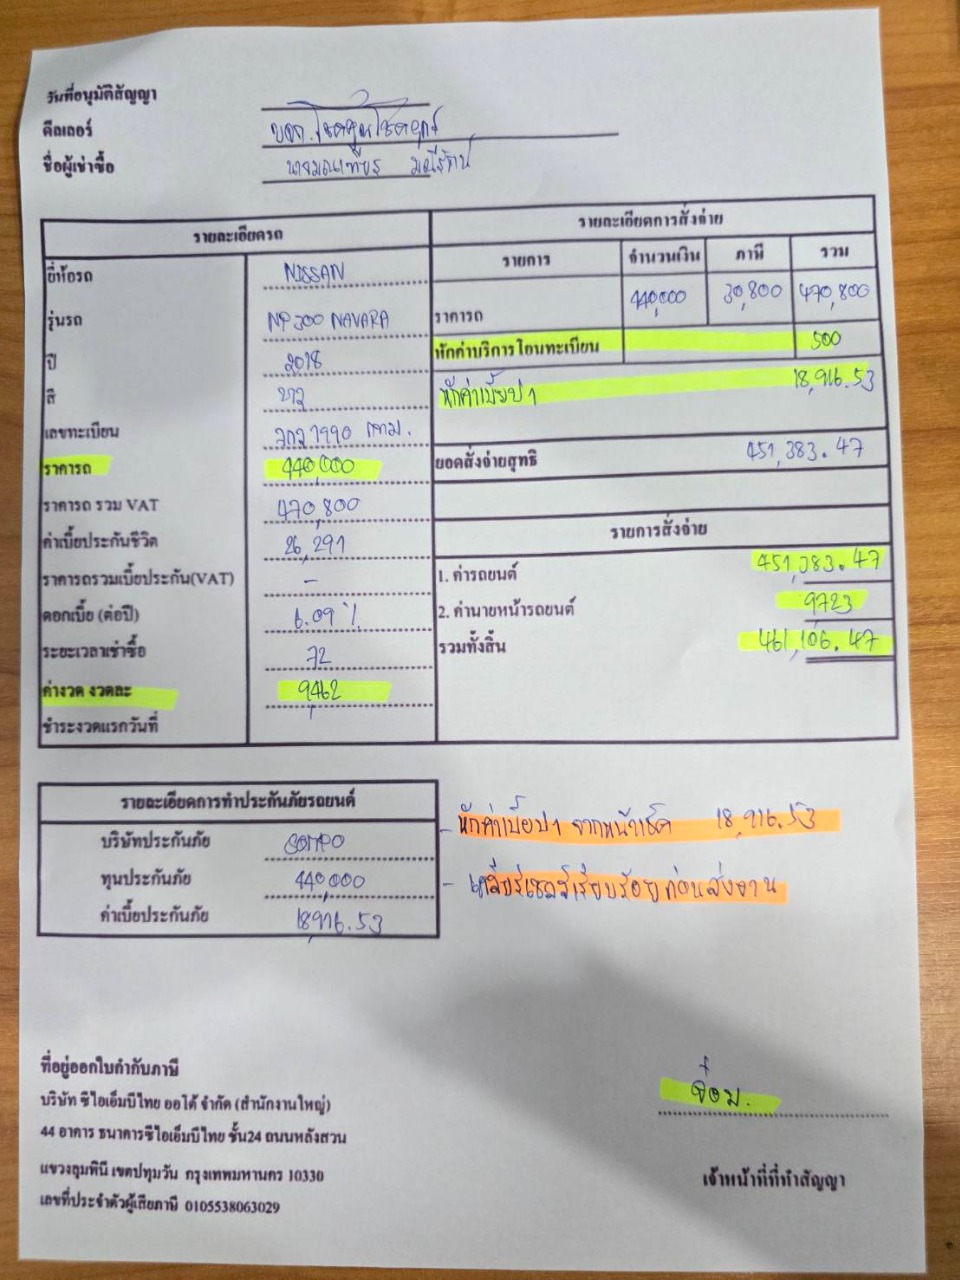 วันที่อนุมัติสัญญา
ดีลเลอร์ บจก.
ชื่อผู้เช่าซื้อ นายมณเฑียร มณีรัตน์
รายละเอียดรถ
ยี่ห้อรถ NISSAN
รุ่นรถ NP300 NAVARA
ปี 2018
สี ขาว
เลขทะเบียน 1990 กทม.
ราคารถ 440,000
ราคารถ รวม VAT 470,800
ค่าเบี้ยประกันชีวิต 26,291
ราคารถรวมเบี้ยประกัน(VAT) -
ดอกเบี้ย (ต่อปี) 6.09 %
ระยะเวลาเช่าซื้อ 72
ค่างวด งวดละ 9,462
ชำระงวดแรกวันที่
รายละเอียดการสั่งจ่าย
รายการ จำนวนเงิน ภาษี รวม
ราคารถ 440,000 30,800 470,800
หักค่าบริการโอนทะเบียน 500
หักค่าเบี้ยป1 18,916.53
ยอดสั่งจ่ายสุทธิ 451,383.47
รายการสั่งจ่าย
1. ค่ารถยนต์ 451,383.47
2. ค่านายหน้ารถยนต์ 9723
รวมทั้งสิ้น 461,106.47
รายละเอียดการทำประกันภัยรถยนต์
บริษัทประกันภัย SOMPO
ทุนประกันภัย 440,000
ค่าเบี้ยประกันภัย 18,916.53
- หักค่าเบี้ยป1 จากหน้าเช็ค 18,916.53
- เคลียร์เซลส์เรียบร้อยก่อนส่งงาน
ที่อยู่ออกใบกำกับภาษี
บริษัท ซีไอเอ็มบีไทย ออโต้ จำกัด (สำนักงานใหญ่)
44 อาคาร ธนาคารซีไอเอ็มบีไทย ชั้น24 ถนนหลังสวน
แขวงลุมพินี เขตปทุมวัน กรุงเทพมหานคร 10330
เลขที่ประจำตัวผู้เสียภาษี 0105538063029
เจ้าหน้าที่ที่ทำสัญญา